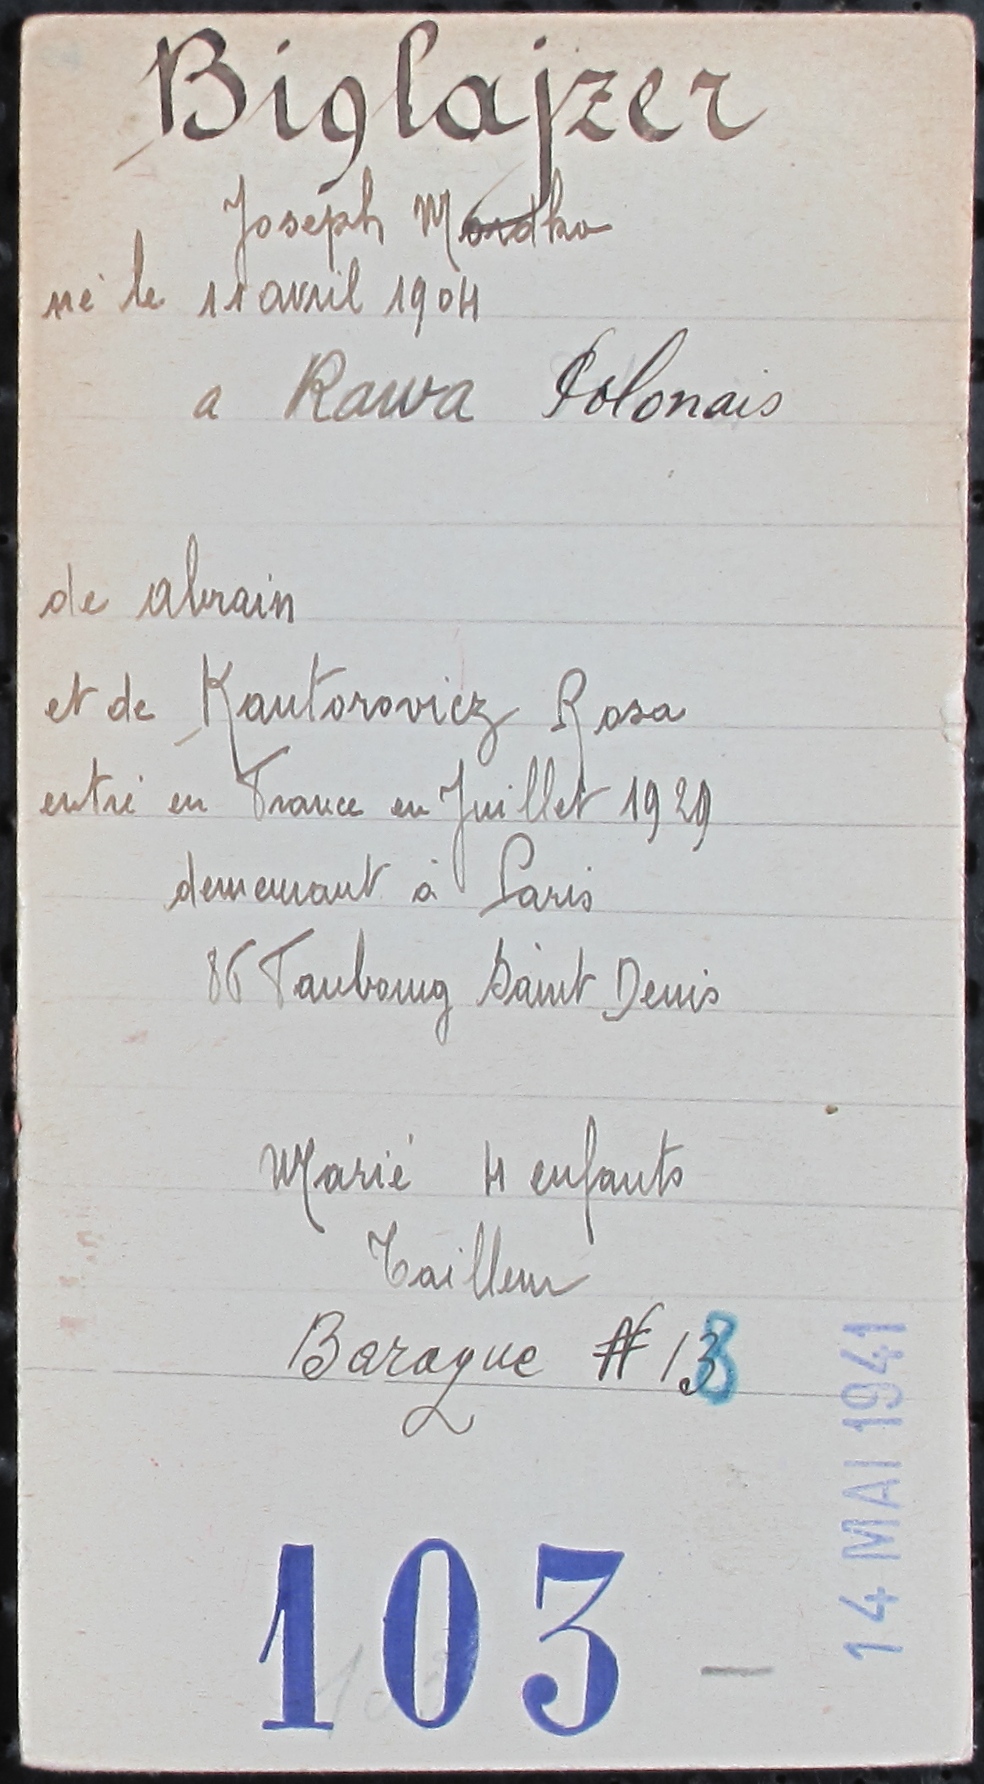 Biglajzer
Joseph Mordko
né le 11 avril 1904
a Rawa Polonais
de abrain
et de Kantorovicz Rosa
entré en France en Juillet 1929
demeurant à Paris
86 Faubourg Saint Denis
Marié 4 enfants
Tailleur
Baraque # 13
14 MAI 1941
103 -